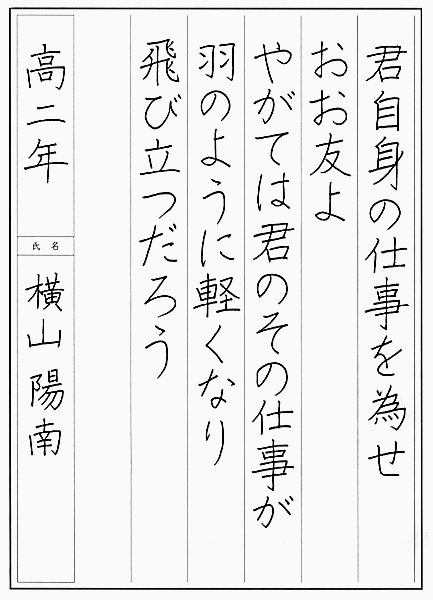 君自身の仕事を為せ
おお友よ
やがては君のその仕事が
羽のように軽くなり
飛び立つだろう
高二年
氏名
横山陽南